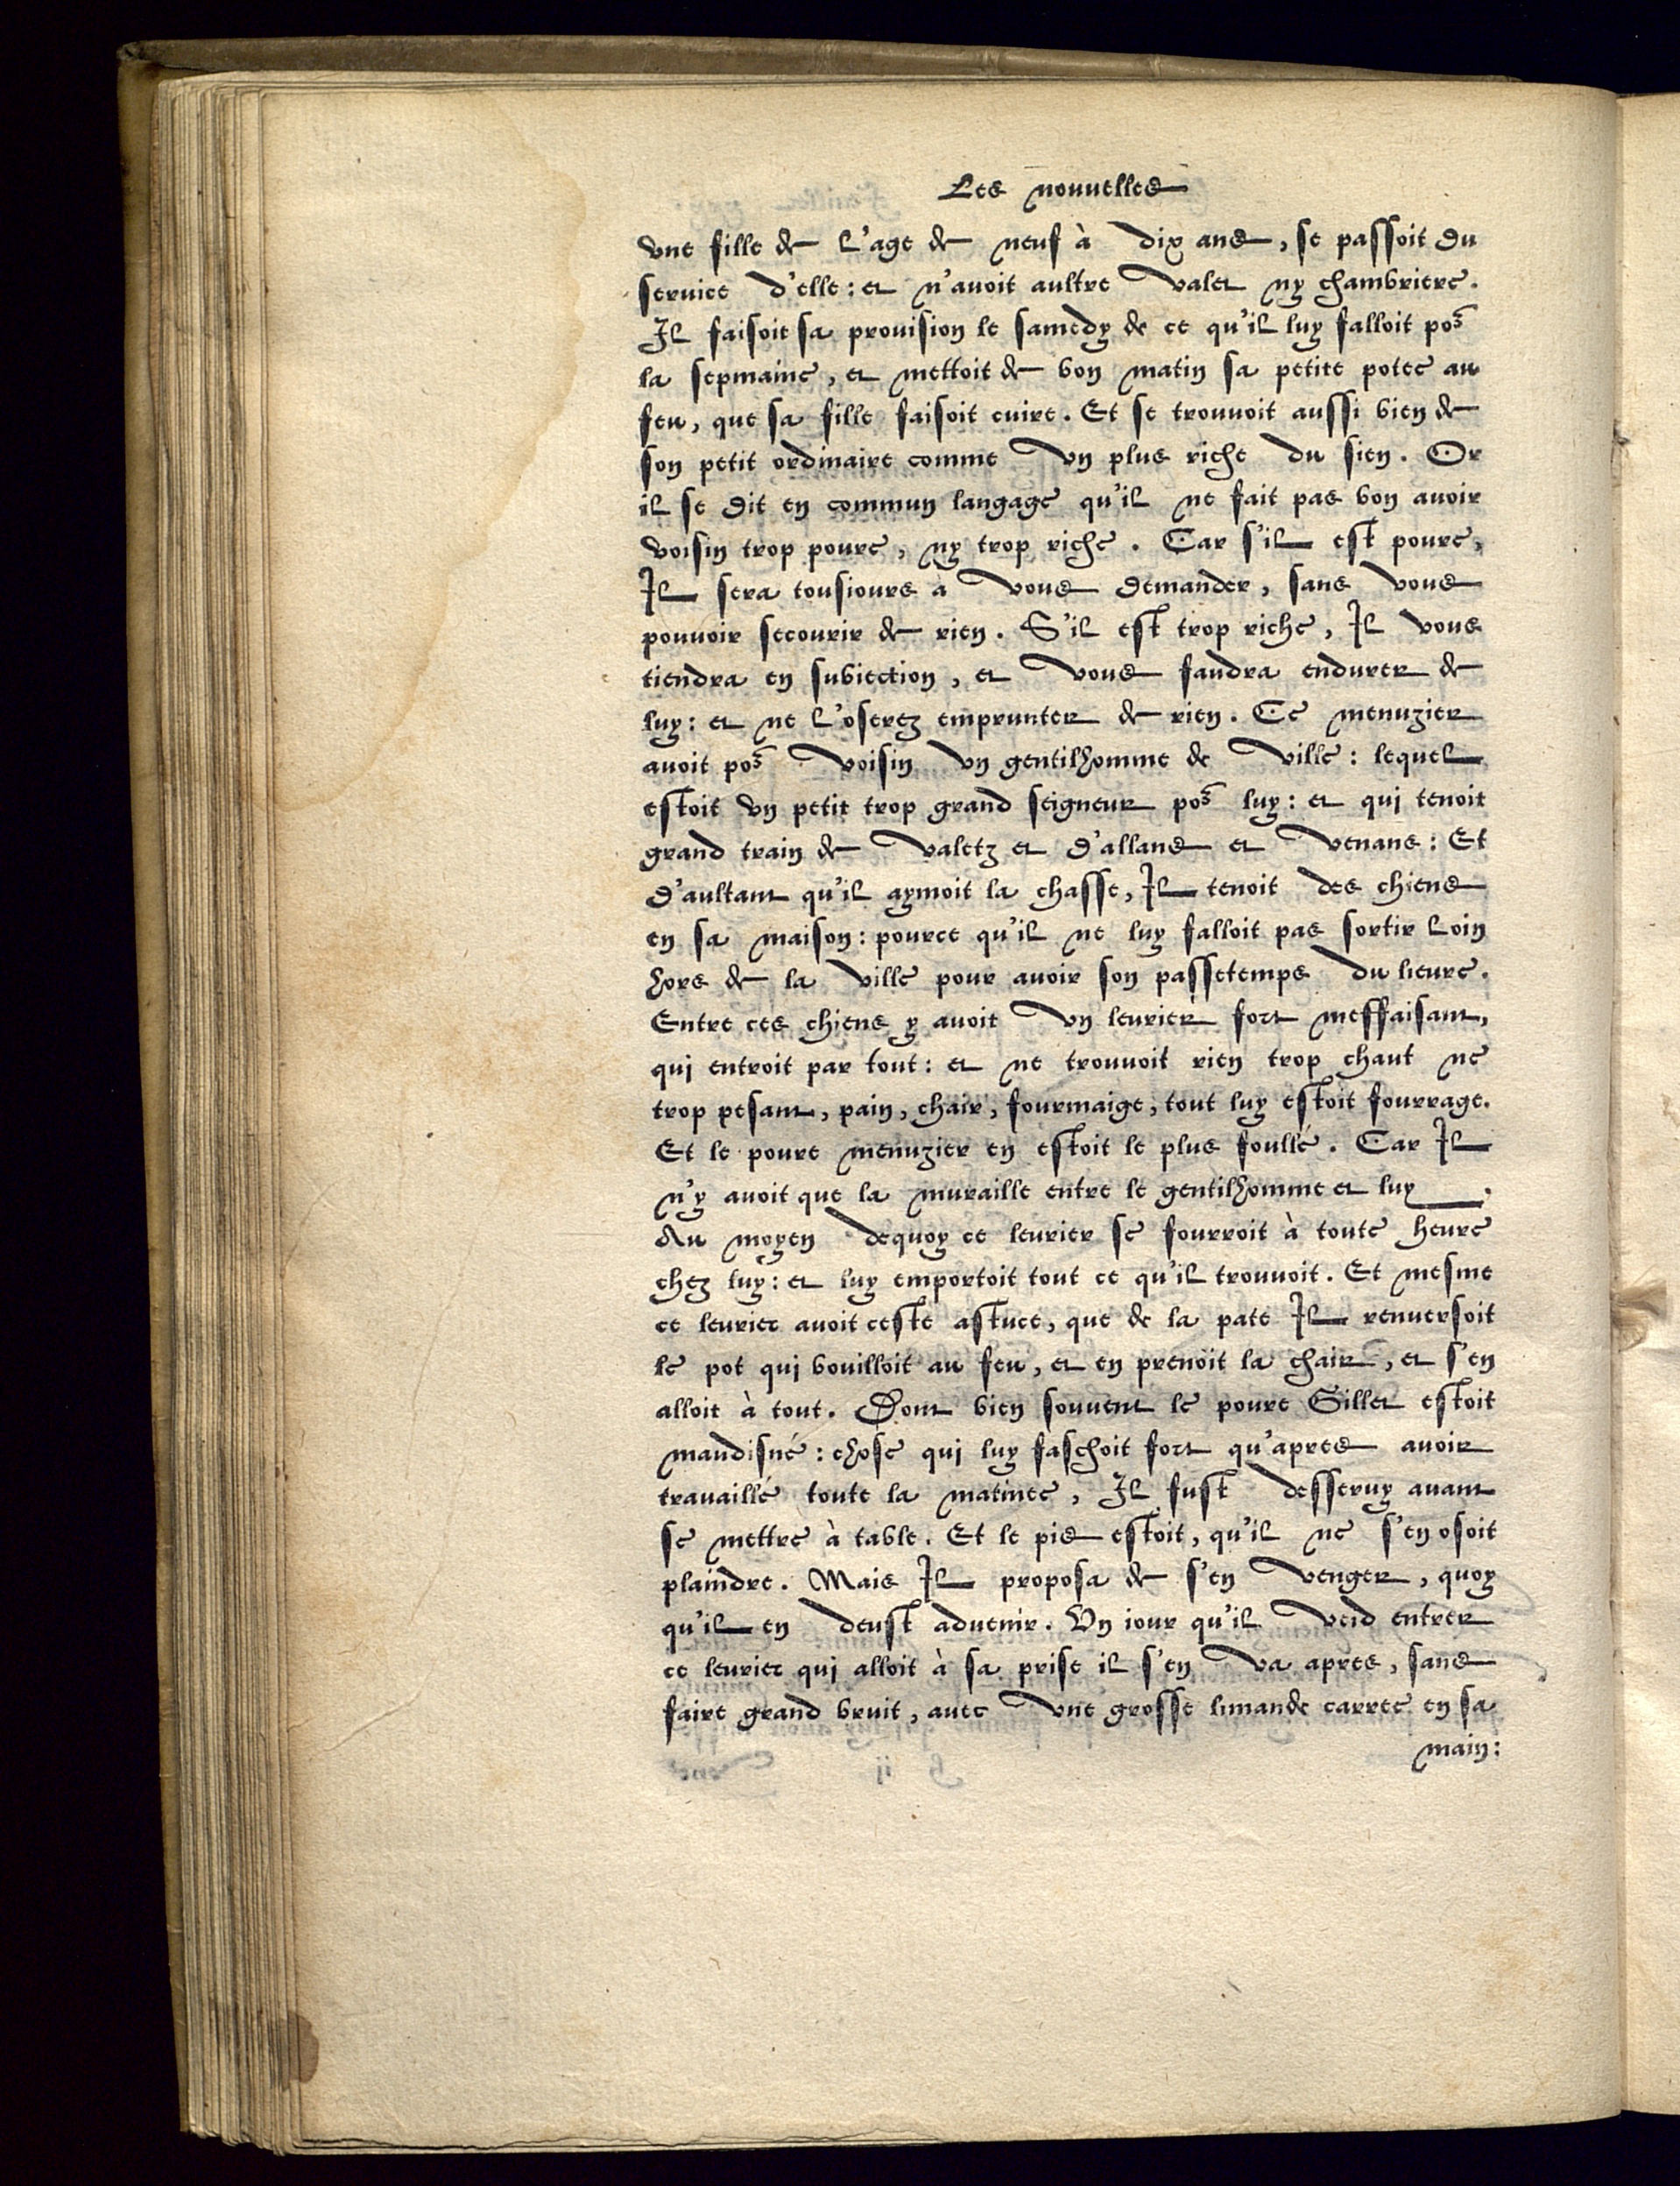 Les nouuelles
vne fille de l'age de neuf à dix ans, se passoit du
seruice d'elle: et n'auoit aultre valet ny chambriere.
Il faisoit sa prouision le samedy de ce qu'il luy falloit pos̃
la sepmaine, et mettoit de bon matin sa petite potee au
feu, que sa fille faisoit cuire. Et se trouuoit aussi bien de
son petit ordinaire comme vn plus riche du sien. Or
il se dit en commun langage qu'il ne fait pas bon auoir
voisin trop poure, ny trop riche. Car s'il est poure,
Il sera tousiours à vous demander, sans vous
pouuoir secourir de rien. S'il est trop riche, Il vous
tiendra en subiection, et vous faudra endurer de
luy: et ne l'oserez emprunter de rien. Ce menuzier
auoit pos̃ voisin vn gentilhomme de ville: lequel
estoit vn petit trop grand seigneur pos̃ luy: et qui tenoit
grand train de valetz et d'allans et venans: Et
d'aultant qu'il aymoit la chasse, Il tenoit des chiens
en sa maison: pource qu'il ne luy falloit pas sortir loin
hors de la ville pour auoir son passetemps du lieure.
Entre ces chiens y auoit vn leurier fort meffaisant,
qui entroit par tout: et ne trouuoit rien trop chaut ne
trop pesant, pain, chair, fourmaige, tout luy estoit fourrage.
Et le poure menuzier en estoit le plus foullé. Car Il
n'y auoit que la muraille entre le gentilhomme et luy.
Au moyen dequoy ce leurier se fourroit à toute heure
chez luy: et luy emportoit tout ce qu'il trouuoit. Et mesme
ce leurier auoit ceste astuce, que de la pate Il renuersoit
le pot qui bouilloit au feu, et en prenoit la chair, et s'en
alloit à tout. Dont bien souuent le poure Gillet estoit
maudisné: chose qui luy faschoit fort qu'apres auoir
trauaillé toute la matinee, Il fust desseruy auant
se mettre à table. Et le pis estoit, qu'il ne s'en osoit
plaindre. Mais Il proposa de s'en venger, quoy
qu'il en deust aduenir. Vn iour qu'il veid entrer
ce leurier qui alloit à sa prise il s'en va apres, sans
faire grand bruit, auec vne grosse limande carree en sa
main: